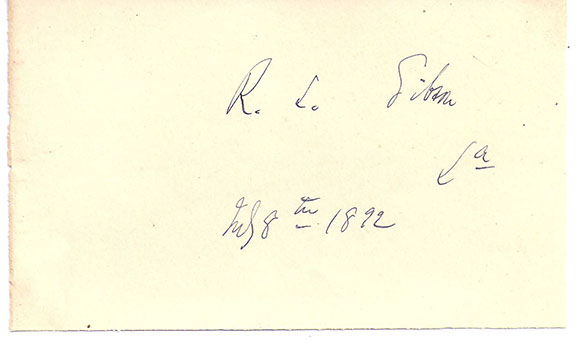 R. L. Gibson
La
July 8th 1892